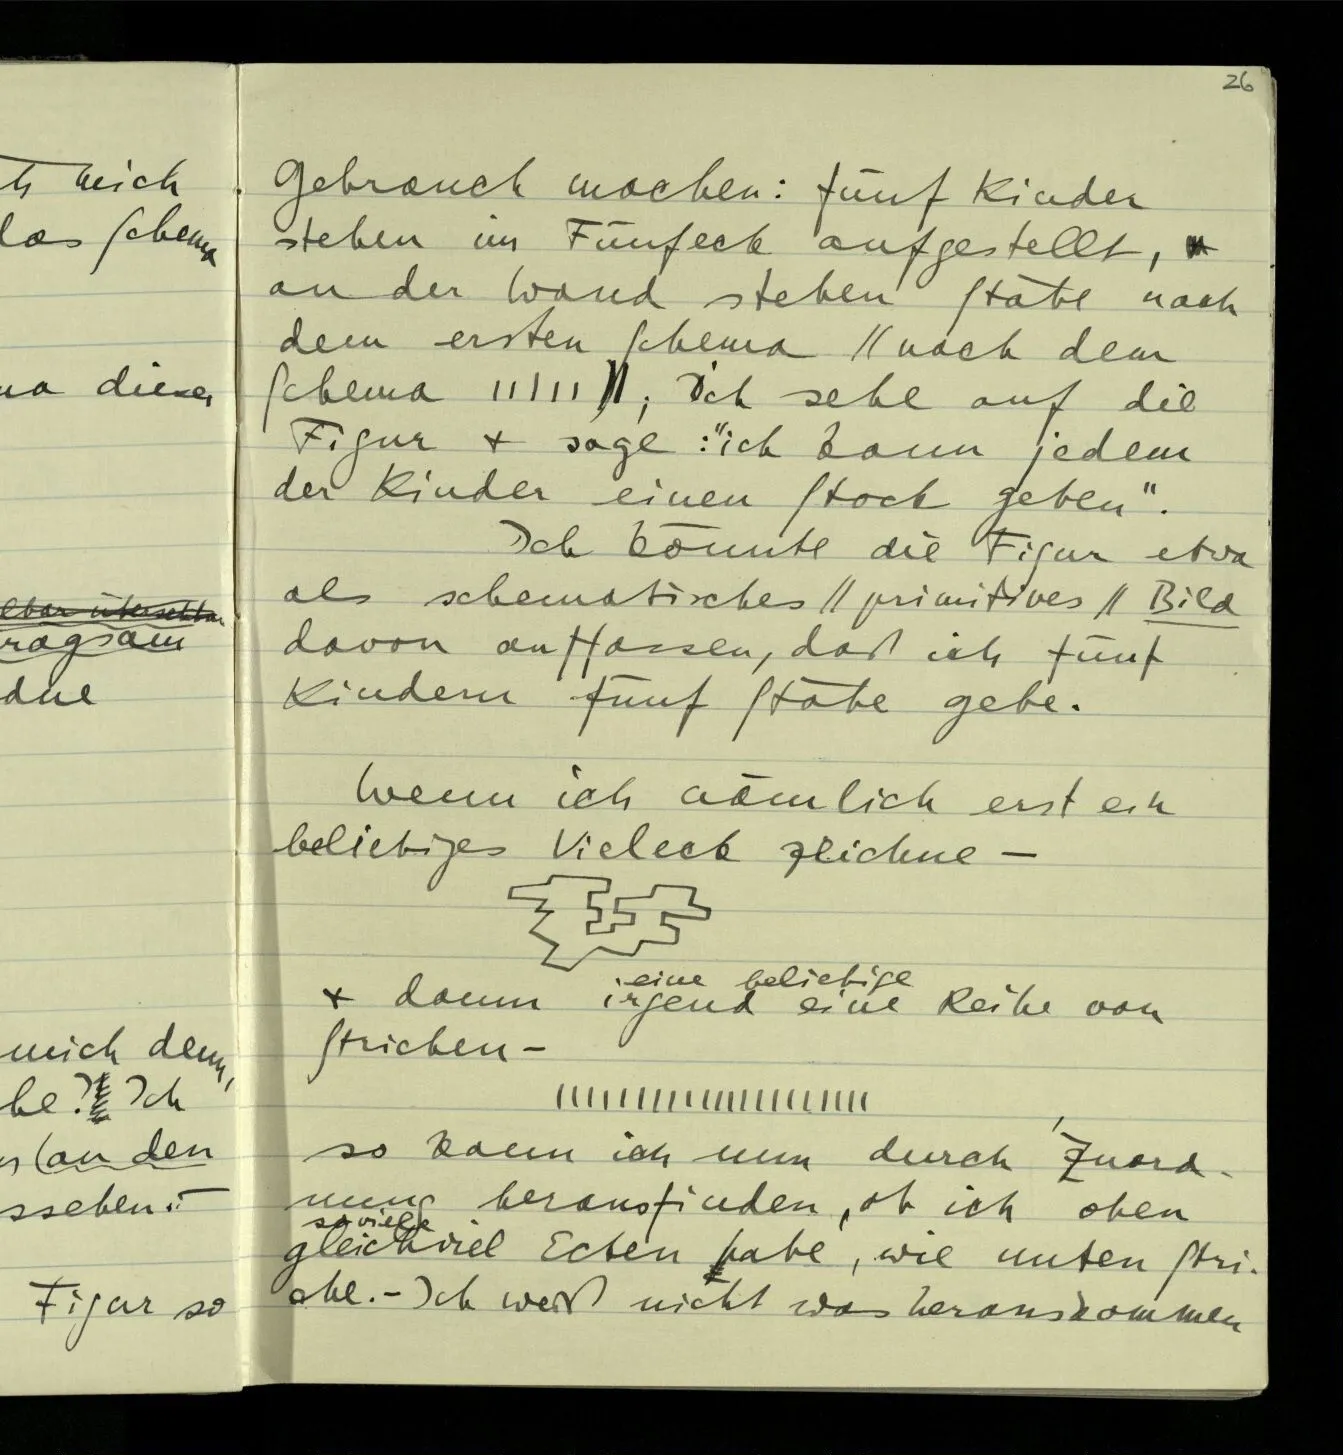 26
ts mich
las Schema
na dieser
ragsam
dne
mich denn,
be? Ich
(an den
ssehen."–
Figur so
Gebrauch machen: fünf Kinder
stehen im Fünfeck aufgestellt,
an der Wand stehen Stäbe nach
dem ersten Schema // nach dem
Schema ||||| //; Ich sehe auf die
Figur + sage: "ich kann jedem
der Kinder einen Stock geben".
Ich könnte die Figur etwa
als schematisches // primitives // Bild
davon auffassen, daß ich fünf
Kindern fünf Stäbe gebe.
Wenn ich nämlich erst ein
beliebiges Vieleck zeichne –
eine beliebige
+ dann irgend eine Reihe von
Strichen –
||||||||||||||||||||
so kann ich nun durch Zuord-
nung herausfinden, ob ich oben
soviele
gleichviel Ecken habe, wie unten Stri-
che. – Ich weiß nicht was herauskommen